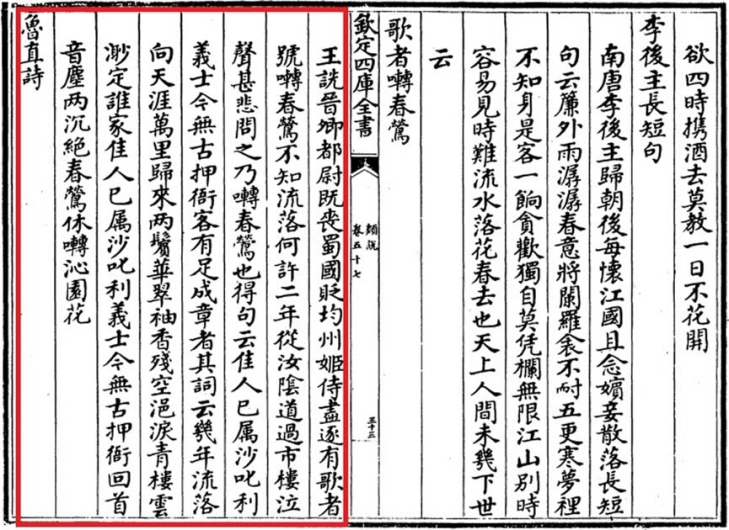 欲四時携酒去莫教一日不花開
李後主長短句
南唐李後主歸朝後每懷江國且念嬪妾散落長短
句云簾外雨潺潺春意將闌羅衾不耐五更寒夢裡
不知身是客一餉貪歡獨自莫凭欄無限江山別時
容易見時難流水落花春去也天上人間未幾下世
云
歌者囀春鶯
欽定四庫全書
類説
卷五十七
三十三
王詵晉卿都尉既喪蜀國貶均州姬侍盡逐有歌者
號囀春鶯不知流落何許二年從汝陰道過市樓泣
聲甚悲問之乃囀春鶯也得句云佳人已属沙叱利
義士今無古押衙客有足成章者其詞云幾年流落
向天涯萬里歸來两鬢華翠袖香殘空浥淚青樓雲
渺定誰家佳人已属沙叱利義士今無古押衙回首
音塵两沉絶春鶯休囀沁園花
魯直詩